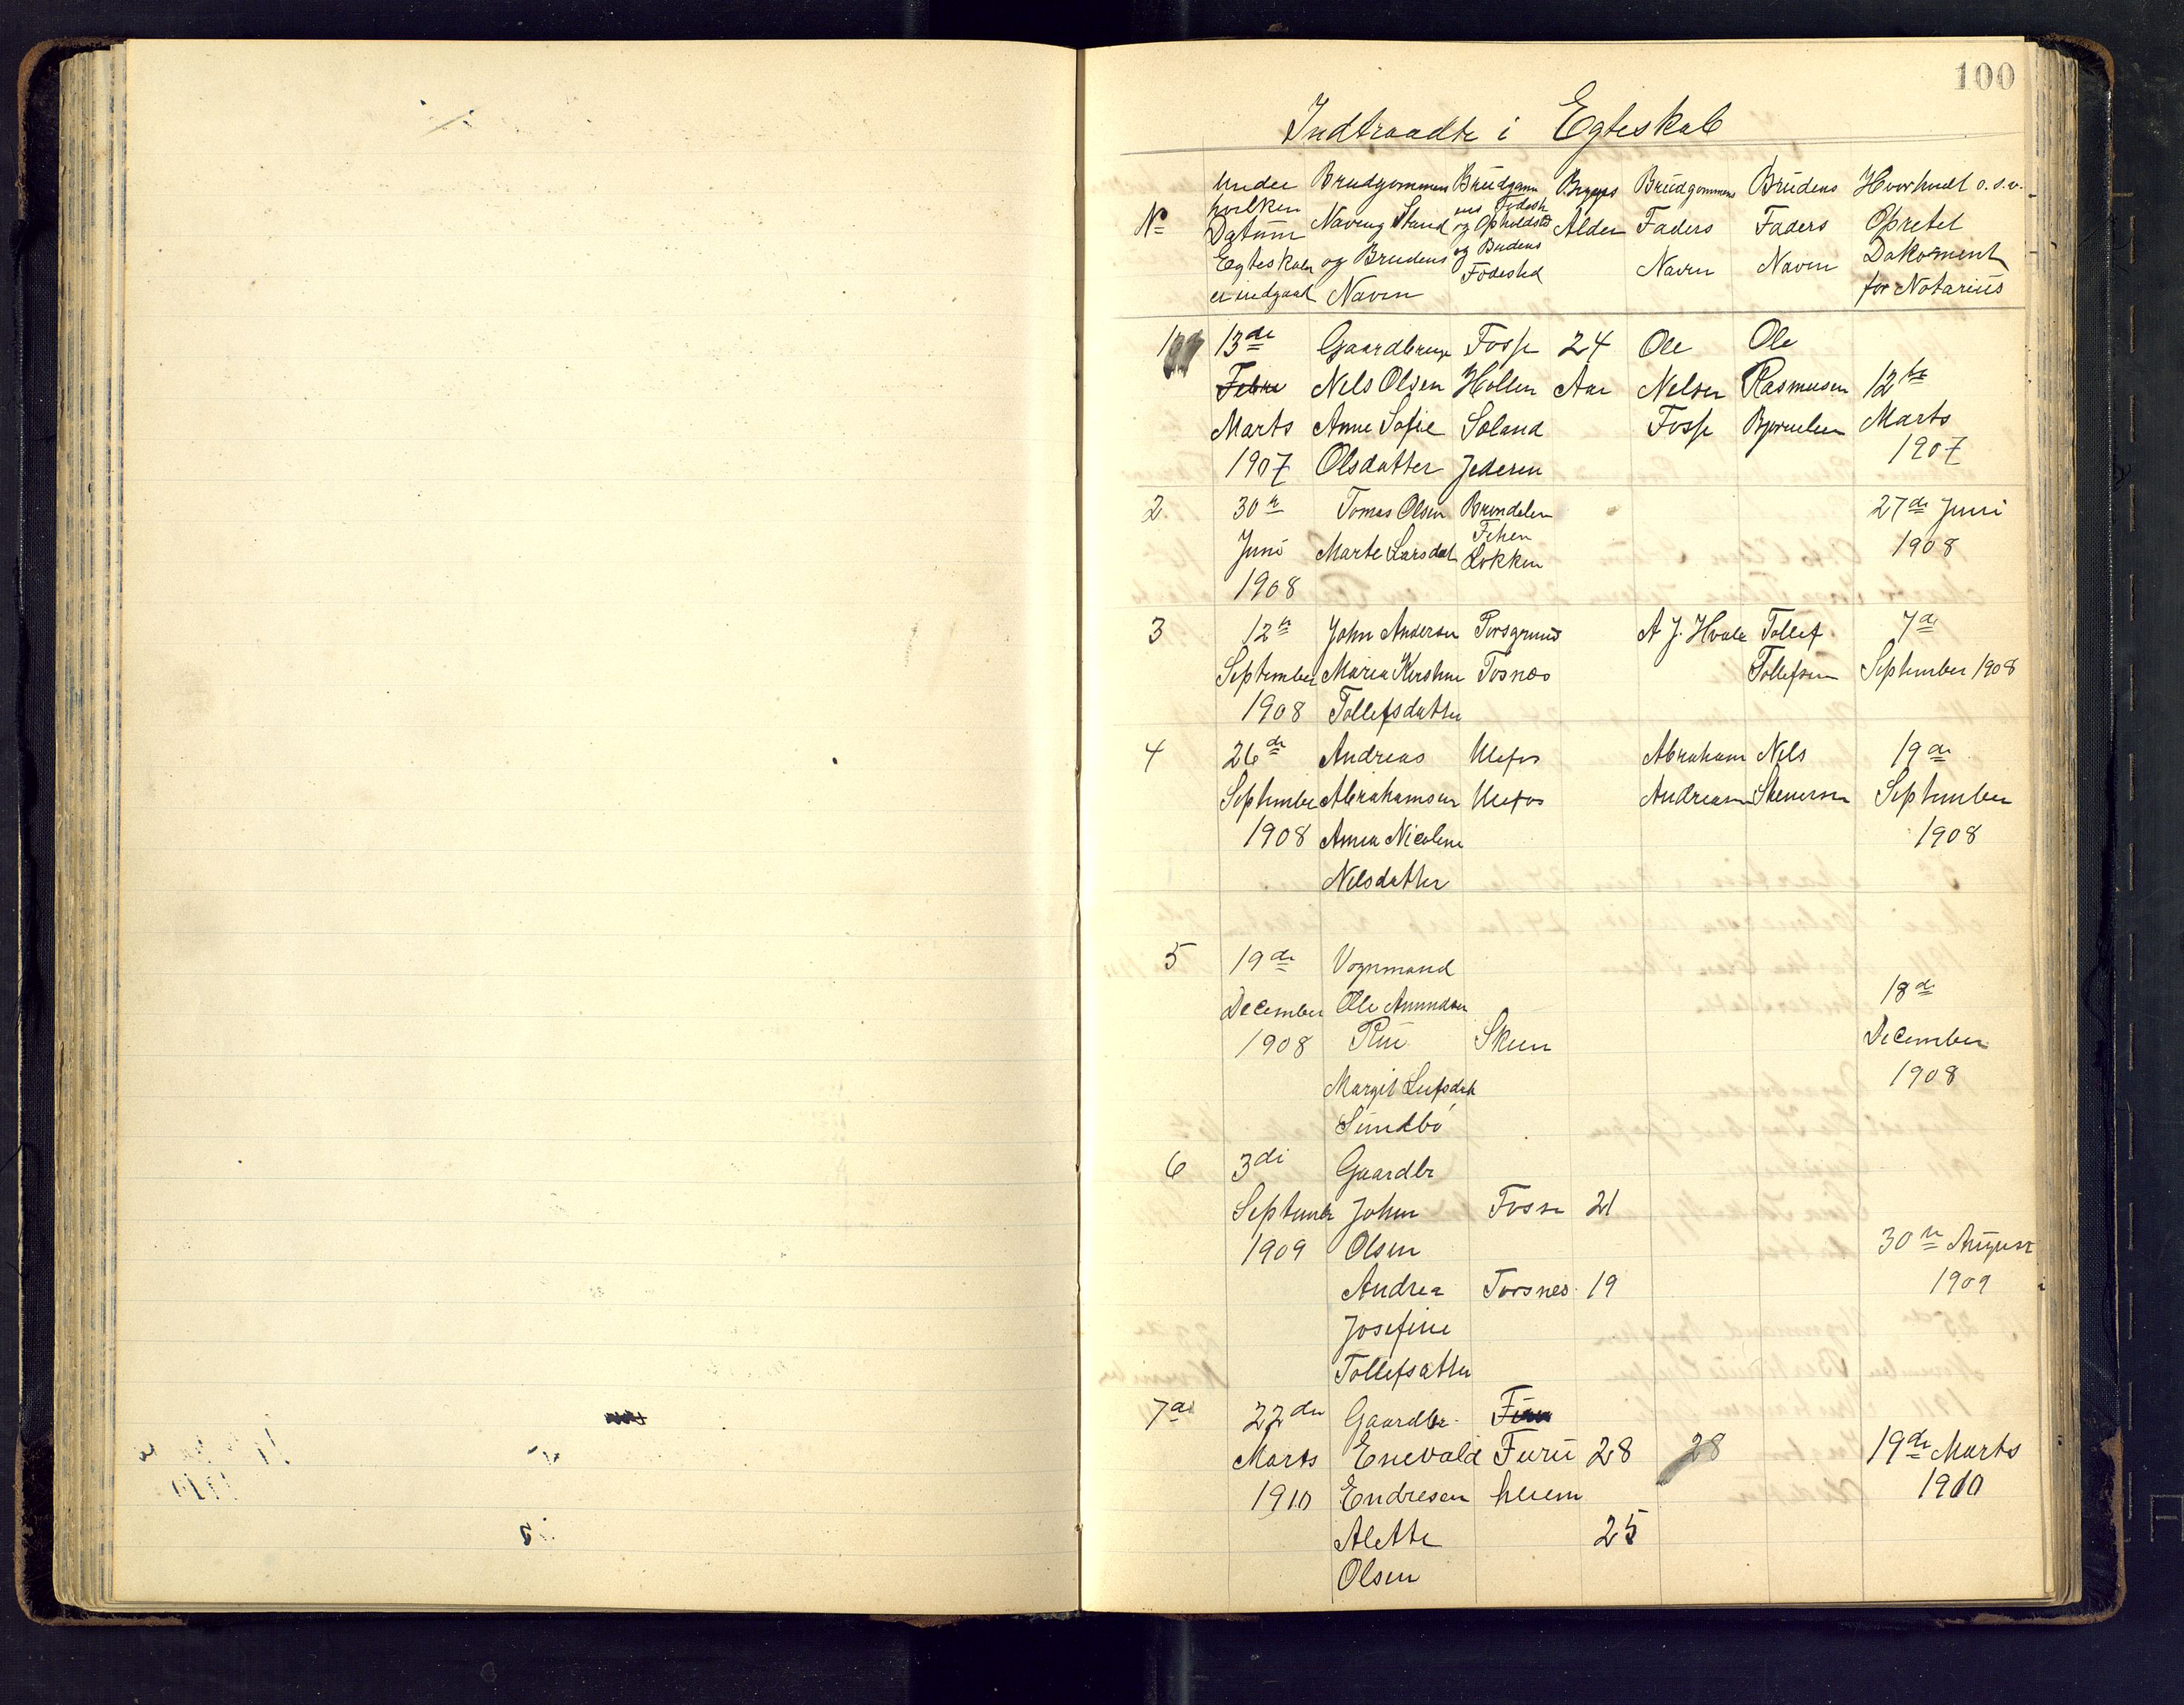 100
Indtraadte i Egteskab
No
Under hvilken Datum Egteskabet er indgaaet
Brudgommens Navn og Stand og Brudens Navn
Brudgommens Fødested og Opholdsted og Brudens Fødested
Begges Alder
Brudgommens Faders Navn
Brudens Faders Navn
Hvorhvidt o.s.v. Opretet Dokoment for Notarius
1 13de Gaardbruger Fosse 24 Ole Ole
Febru Nels Olsen Hollen Aar Nelsen Rasmusen 12te
Marts Anne Sofie Soland Fosse Marts
1907 Olsdatter Jederen 1907
2 30te Tomas Olsen 27de Juni
Juni Marte Larsdat Fehen 1908
1908 Løkken
3 12te John Andersen Porsgrund A. J. Hvale Tollef 7de
September Maren Kirstine Tosnæs Tollefsen September 1908
1908 Tollefsdatter
4 26de Andreas Ulefos Abraham Nils 19de
September Abrahamsen Ulefos Andreasen Stenersen September
1908 Anna Nicoline 1908
Nilsdatter
5 19de Vognmand
December Ole Amundsen 18de
1908 Rui Skien December
Margit Leifsdat 1908
Sundbø
6 3di Gaardbr
September John Fosse 21
1909 Olsen 30te August
Andrea Torsnes 19 1909
Josefine
Tollefsatter
7de 22de Gaardbr.
Marts Enevald Furu 28 28 19de Marts
1910 Endresen 1910
Alette 25
Olsen